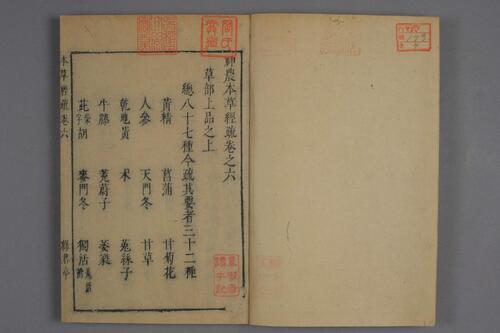 神農本草經疏卷之六
草部上品之上
總八十七種今疏其要者三十二種
黃精 菖蒲 甘菊花
人參 天門冬 甘草
乾地黃 术 菟絲子
牛膝 茺蔚子 萎蕤
茈柴字胡 麥門冬 獨活羌活附
本草經疏卷六